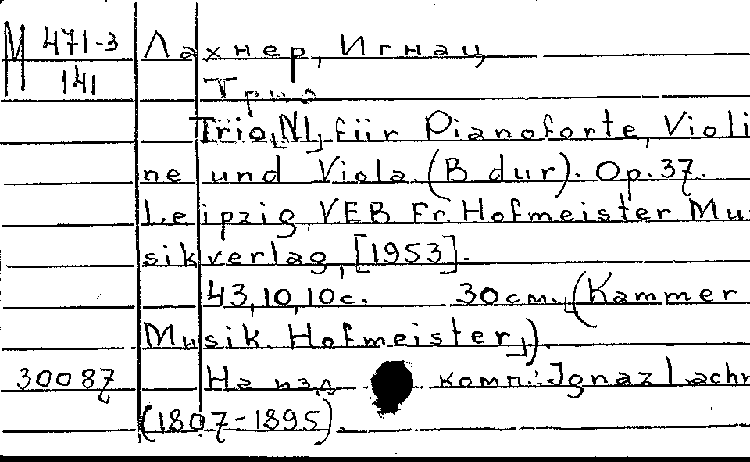 М 471-3 Лахнер, Игнац
141 Трио
Trio, N1, für Pianoforte, Violi
ne und Viola (B dur). Op. 37.
Leipzig, VEB Fr. Hofmeister Mu
sikverlag, [1953].
43, 10, 10 с. 30 см. (Kammer
Musik. Hofmeister,).
30087 На изд. комп.: Ignaz Lachn
(1807-1895).